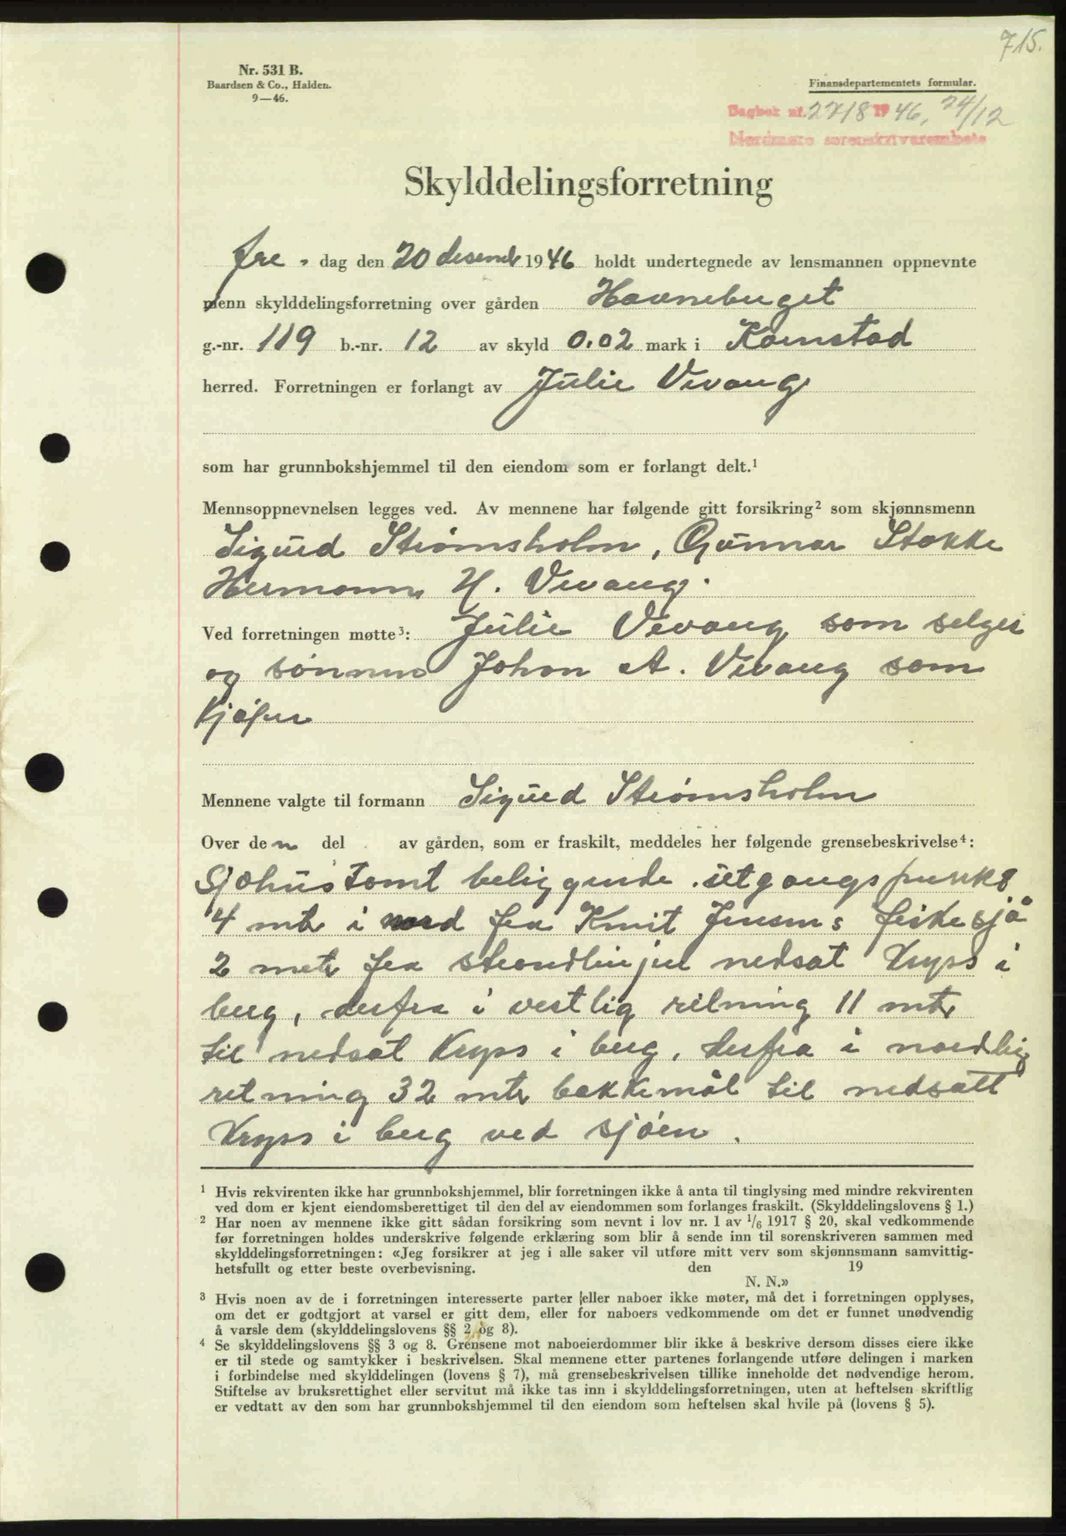 715.
Nr. 531 B.
Baardsen & Co., Halden.
9—46.
Finansdepartementets formular.
Dagbok nr. 2218 1946, 24/12
Nordmøre sorenskriverembete
Skylddelingsforretning
fre - dag den 20 desember 1946 holdt undertegnede av lensmannen oppnevnte
menn skylddelingsforretning over gården Havneberget
g.-nr. 119 b.-nr. 12 av skyld 0.02 mark i Kornstad
herred. Forretningen er forlangt av Julie Vevang
som har grunnbokshjemmel til den eiendom som er forlangt delt.¹
Mennsoppnevnelsen legges ved. Av mennene har følgende gitt forsikring² som skjønnsmenn
Sigurd Strømsholm, Gunnar Stokke
Hermann H. Vevang.
Ved forretningen møtte³: Julie Vevang som selger
og sønnen Johan A. Vevang som
kjøper
Mennene valgte til formann Sigurd Strømsholm
Over den del av gården, som er fraskilt, meddeles her følgende grensebeskrivelse⁴:
Sjøhustomt beliggende. utgangspunkt
4 mtr i nord fra Knut Jensens fiskesjå
2 metr fra strandlinjen nedsat kryss i
berg, derfra i vestlig retning 11 mtr
til nedsat kryss i berg, derfra i nordlig
retning 32 mtr bakkemål til nedsatt
kryss i berg ved sjøen.
¹ Hvis rekvirenten ikke har grunnbokshjemmel, blir forretningen ikke å anta til tinglysing med mindre rekvirenten
ved dom er kjent eiendomsberettiget til den del av eiendommen som forlanges fraskilt. (Skylddelingslovens § 1.)
² Har noen av mennene ikke gitt sådan forsikring som nevnt i lov nr. 1 av 1/6 1917 § 20, skal vedkommende
før forretningen holdes underskrive følgende erklæring som blir å sende inn til sorenskriveren sammen med
skylddelingsforretningen: «Jeg forsikrer at jeg i alle saker vil utføre mitt verv som skjønnsmann samvittig-
hetsfullt og etter beste overbevisning. den 19
N. N.»
³ Hvis noen av de i forretningen interesserte parter (eller naboer ikke møter, må det i forretningen opplyses,
om det er godtgjort at varsel er gitt dem, eller for naboers vedkommende om det er funnet unødvendig
å varsle dem (skylddelingslovens §§ 2 og 8).
⁴ Se skylddelingslovens §§ 3 og 8. Grensene mot naboeierdommer blir ikke å beskrive dersom disses eiere ikke
er til stede og samtykker i beskrivelsen. Skal mennene etter partenes forlangende utføre delingen i marken
i forbindelse med skylddelingen (lovens § 7), må grensebeskrivelsen tillike inneholde det nødvendige herom.
Stiftelse av bruksrettighet eller servitut må ikke tas inn i skylddelingsforretningen, uten at heftelsen skriftlig
er vedtatt av den som har grunnbokshjemmel til den eiendom som heftelsen skal hvile på (lovens § 5).